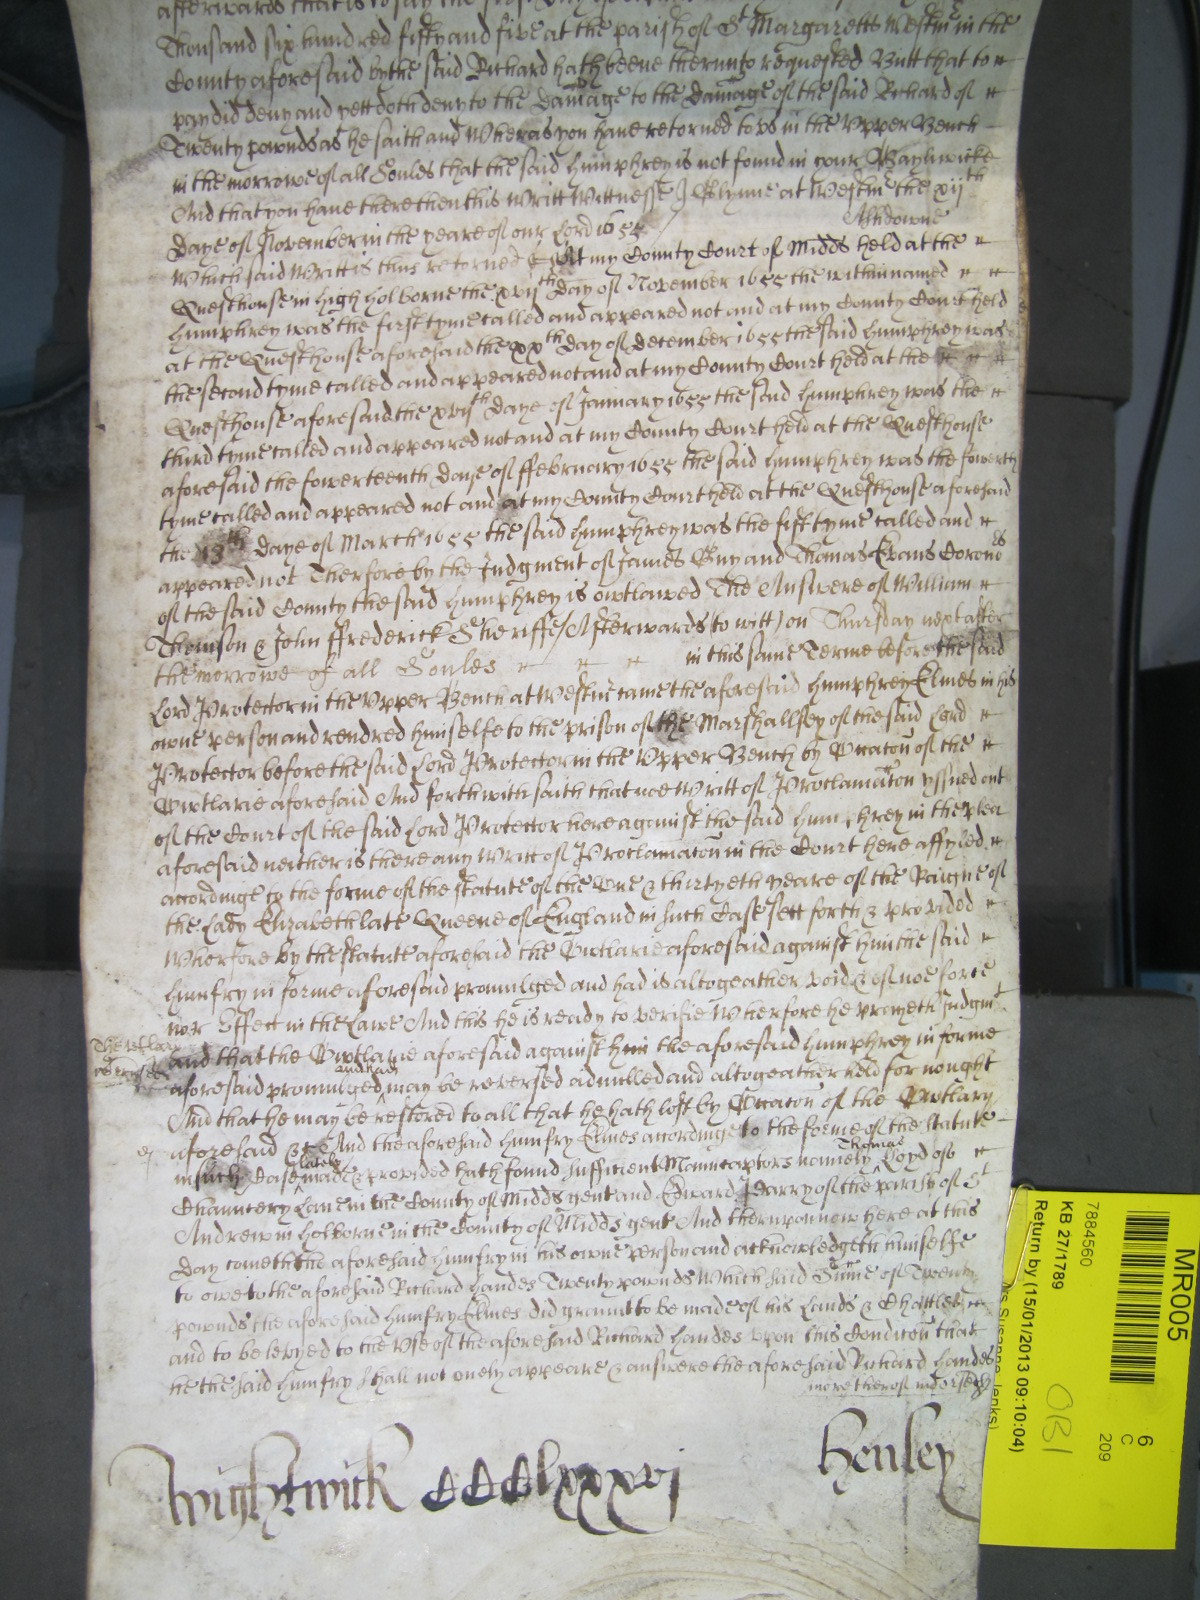 afterwards that is to say the
Thousand six hundred fifty and five at the parish of St Margaretts Westm in the
County aforesaid by the said Richard hath beene thereunto requested Butt that to
pay did deny and yett doth deny to the Damage to the Damage of the said Richard of
Twenty pownds as he saith and Wheras you have retorned to us in the Upper Bench
in the morrowe of all Soules that the said Humphrey is not found in your Bayliwicke
And that you have there then this Writt Wittnesse J Glynne at Westm the xijth
Daye of November in the yeare of our Lord 1655
Which said Writt is thus retorned At my County Court of Midds held at the
Questhouse in high holborne the xvijth Day of November 1655 the within named
Humphrey was the first tyme called and appeared not and at my County Court held
at the Questhouse aforesaid the xxth Day of December 1655 the said Humphrey was
the second tyme called and appeared not and at my County Court held at the
Questhouse aforesaid the xvijth Daye of January 1655 the said Humphrey was the
third tyme called and appeared not and at my County Court held at the Questhouse
aforesaid the fowerteenth Daye of ffebruary 1655 the said Humphrey was the fowerth
tyme called and appeared not and at my County Court held at the Questhouse aforesaid
the 13th Daye of March 1655 the said Humphrey was the fift tyme called and
appeared not Therfore by the Judgment of James Guy and Thomas Evans Corons
of the said County the said Humphrey is owtlawed The Answere of William
Thomson & John ffrederick Sheriffe/ Afterwards (to witt) on Thursday next after
the morrowe of all Soules in this same Terme before the said
Lord Protector in the Upper Bench at Westm came the aforesaid Humphrey Elmes in his
owne person and rendred himselfe to the prison of the Marshallsey of the said Lord
Protector before the said Lord Protector in the Upper Bench by Occaton of the
Owtlarie aforesaid And forthwith saith that noe Writt of Proclamaton yssued out
of the Court of the said Lord Protector here against the said Humphrey in the plea
aforesaid neither is there any Writt of Proclamaton in the Court here affyled
accordinge to the forme of the statute of the One & thirtyeth yeare of the Raigne of
the Lady Elizabeth late Queene of England in such Case sett forth & provided
Wherfore by the statute aforesaid the Owtlarie aforesaid against him the said
Humfry in forme aforesaid promulged and had is altogeather void & of noe force
nor Effect in the Lawe And this he is ready to verifie Wherfore he prayeth Judgmt
The utlary
reversed
and that the Owtlarie aforesaid against him the aforesaid Humphrey in forme
and had
aforesaid promulged may be reversed adnulled and altogeather held for nought
And that he may be restored to all that he hath lost by Occaton of the Owtlary
aforesaid &c And the aforesaid Humfry Elmes accordinge to the forme of the statute
lately Thomas
in such Case made & provided hath found sufficient Maincaptors namely Loyd of
Chauncery Lane in the County of Midds gent and Edward Parry of the parish of St
Andrew in holborne in the County of Midds gent And therupon now here at this
Day cometh the aforesaid Humfry in his owne person and acknowledgeth himselfe
to owe to the aforesaid Richard Handes Twenty pownds Which said Sume of Twenty
pownds the aforesaid Humfry Elmes did graunt to be made of his Lands & Chattles
and to be levyed to the Use of the aforesaid Richard Handes upon this Conditon that
he the said Humfry shall not onely appeare & answere the aforesaid Richard Handes
more therof indorsed
Wightwick CCCClxxxvj Henley
MR005
6
C
209
7884560
KB 27/1789
Return by (15/01/2013 09:10:04)
OB1